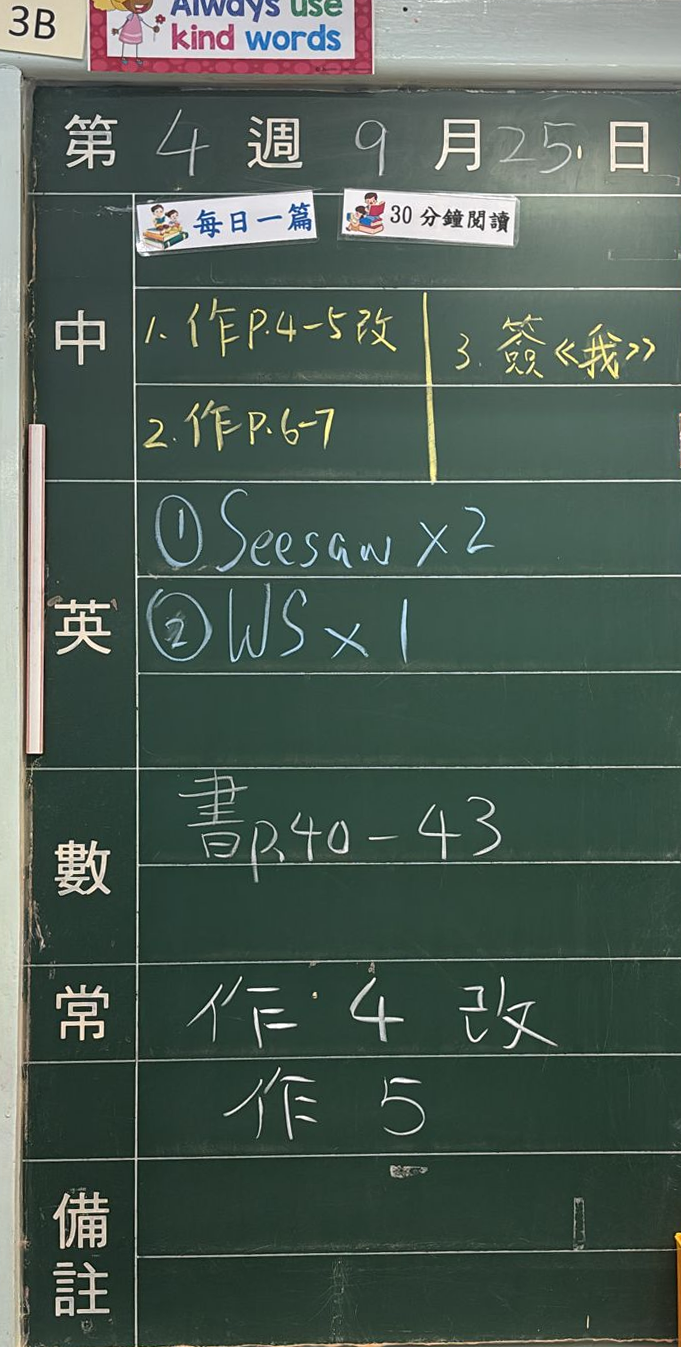 3B
Always use
kind words
第 4 週 9 月 25 日
每日一篇
30分鐘閱讀
中
1. 作P.4-5改
2. 作P.6-7
3. 簽《我》
英
① Seesaw x2
② WS x 1
數
書P.40-43
常
作 4 改
作 5
備註